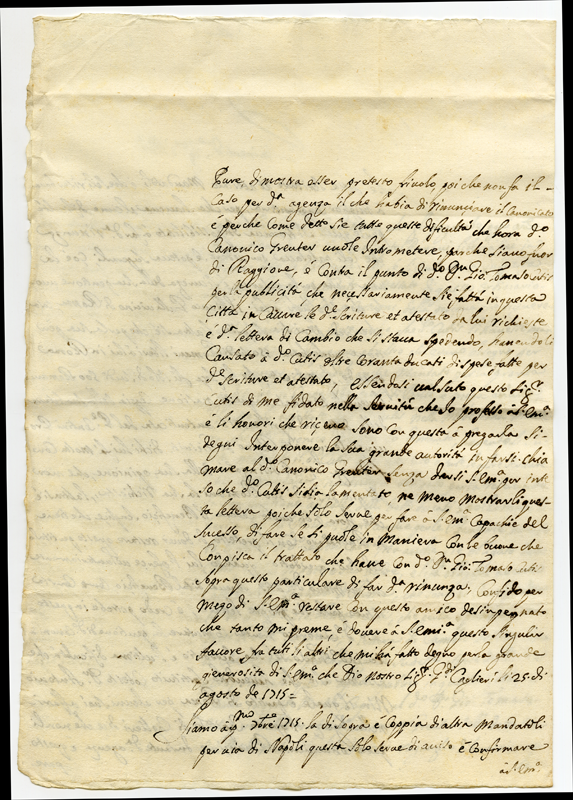 Pure, dimostra esser pretesto friuolo, poi che non fa il
Caso per dª agenza il che habia di rinunciare il Canonicato
é perche come detto sie tutte queste dificultà che hora d.º
Canonico Greuter uuole Intrometere, parche siano fuor
di Raggione, é Contra il punto di d.º Dn. Gio: Tomaso Cutis
per la publicità che necessariamente sie fatta in questa
Città in Cauare le d.e scriture et atestato da lui richieste
é dª lettera di Cambio che si staua spedendo, hauendoli
Causato à d.º Cutis oltre Coranta ducati di spese fatte per
d.e scriture et atestato, essendosi ualsuto questo Sig.r
Cutis di me fidato nella seruitù che Io professo à S. Emª
é li honori che riceuo sono Con questa à pregarla si
degni Interponere la Sua grande autorità in farsi chia
mare al d.º Canonico Greuter senza darsi S. Emª per inte
so che d.º Cutis si sia lamentato ne meno mostrarli ques
ta lettera poi che solo serue per fare à S. Emª Capace del
sucesso, di fare se si puole in Maniera Con le buone che
Conpisca il trattato che haue Con d.º Dn. Gio: Tomaso Cutis
sopra questo particulare di far dª rinunza, Confido per
mezo di S. Emª restare Con questo amico desinpegnato
che tanto mi preme, é douere à S. Emª questo Singular
fauore fra tuti li altri che mi hà fatto degno per sua grande
generosita di S. Emª che Dio nostro Sig.r Gde Caglieri li 25 di
agosto de 1715 =
Siamo à p.mo 1715. la di sopra é Coppia di altra Mandatoli
per uia di Napoli questa solo serue di auiso é Confirmare
à S. Emª